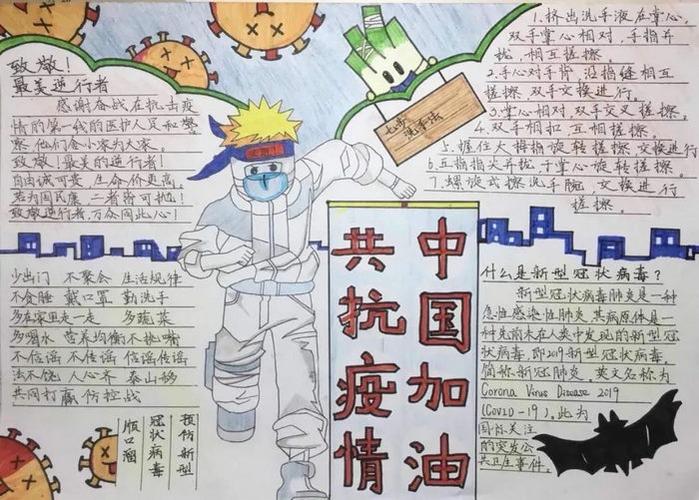 致敬!
最美逆行者
感谢奋战在抗击疫
情的第一线的医护人员和警
察,他们舍小家为大家。
致敬!最美的逆行者!
自由诚可贵,生命价更高。
若为国民康,二者皆可抛!
致敬逆行者,万众同此心!
少出门 不聚会 生活规律
不食腥 戴口罩 勤洗手
多在家里走一走 多蔬菜
多喝水 营养均衡不挑嘴
不信谣 不传谣 信谣传谣
法不饶 人心齐 泰山移
共同打赢防控战
预防新型
冠状病毒
顺口溜
七步
洗手法
1.挤出洗手液在掌心,
双手掌心相对,手指并
拢,相互搓擦。
2.手心对手背,沿指缝相互
搓擦,双手交换进行。
3.掌心相对,双手交叉搓擦。
4.双手相扣,互相搓擦。
5.握住大拇指旋转搓擦,交换进行
6.五指指尖并拢于掌心旋转搓擦。
7.螺旋式擦洗手腕,交换进行
搓擦。
中国加油
共抗疫情
什么是新型冠状病毒?
新型冠状病毒肺炎是一种
急性感染性肺炎,其病原体是一
种先前未在人类中发现的新型冠
状病毒,即2019新型冠状病毒。
简称新冠肺炎,英文名称为
Corona Virus Disease 2019
(COVID-19),此为
国际关注
的突发公
共卫生事件。